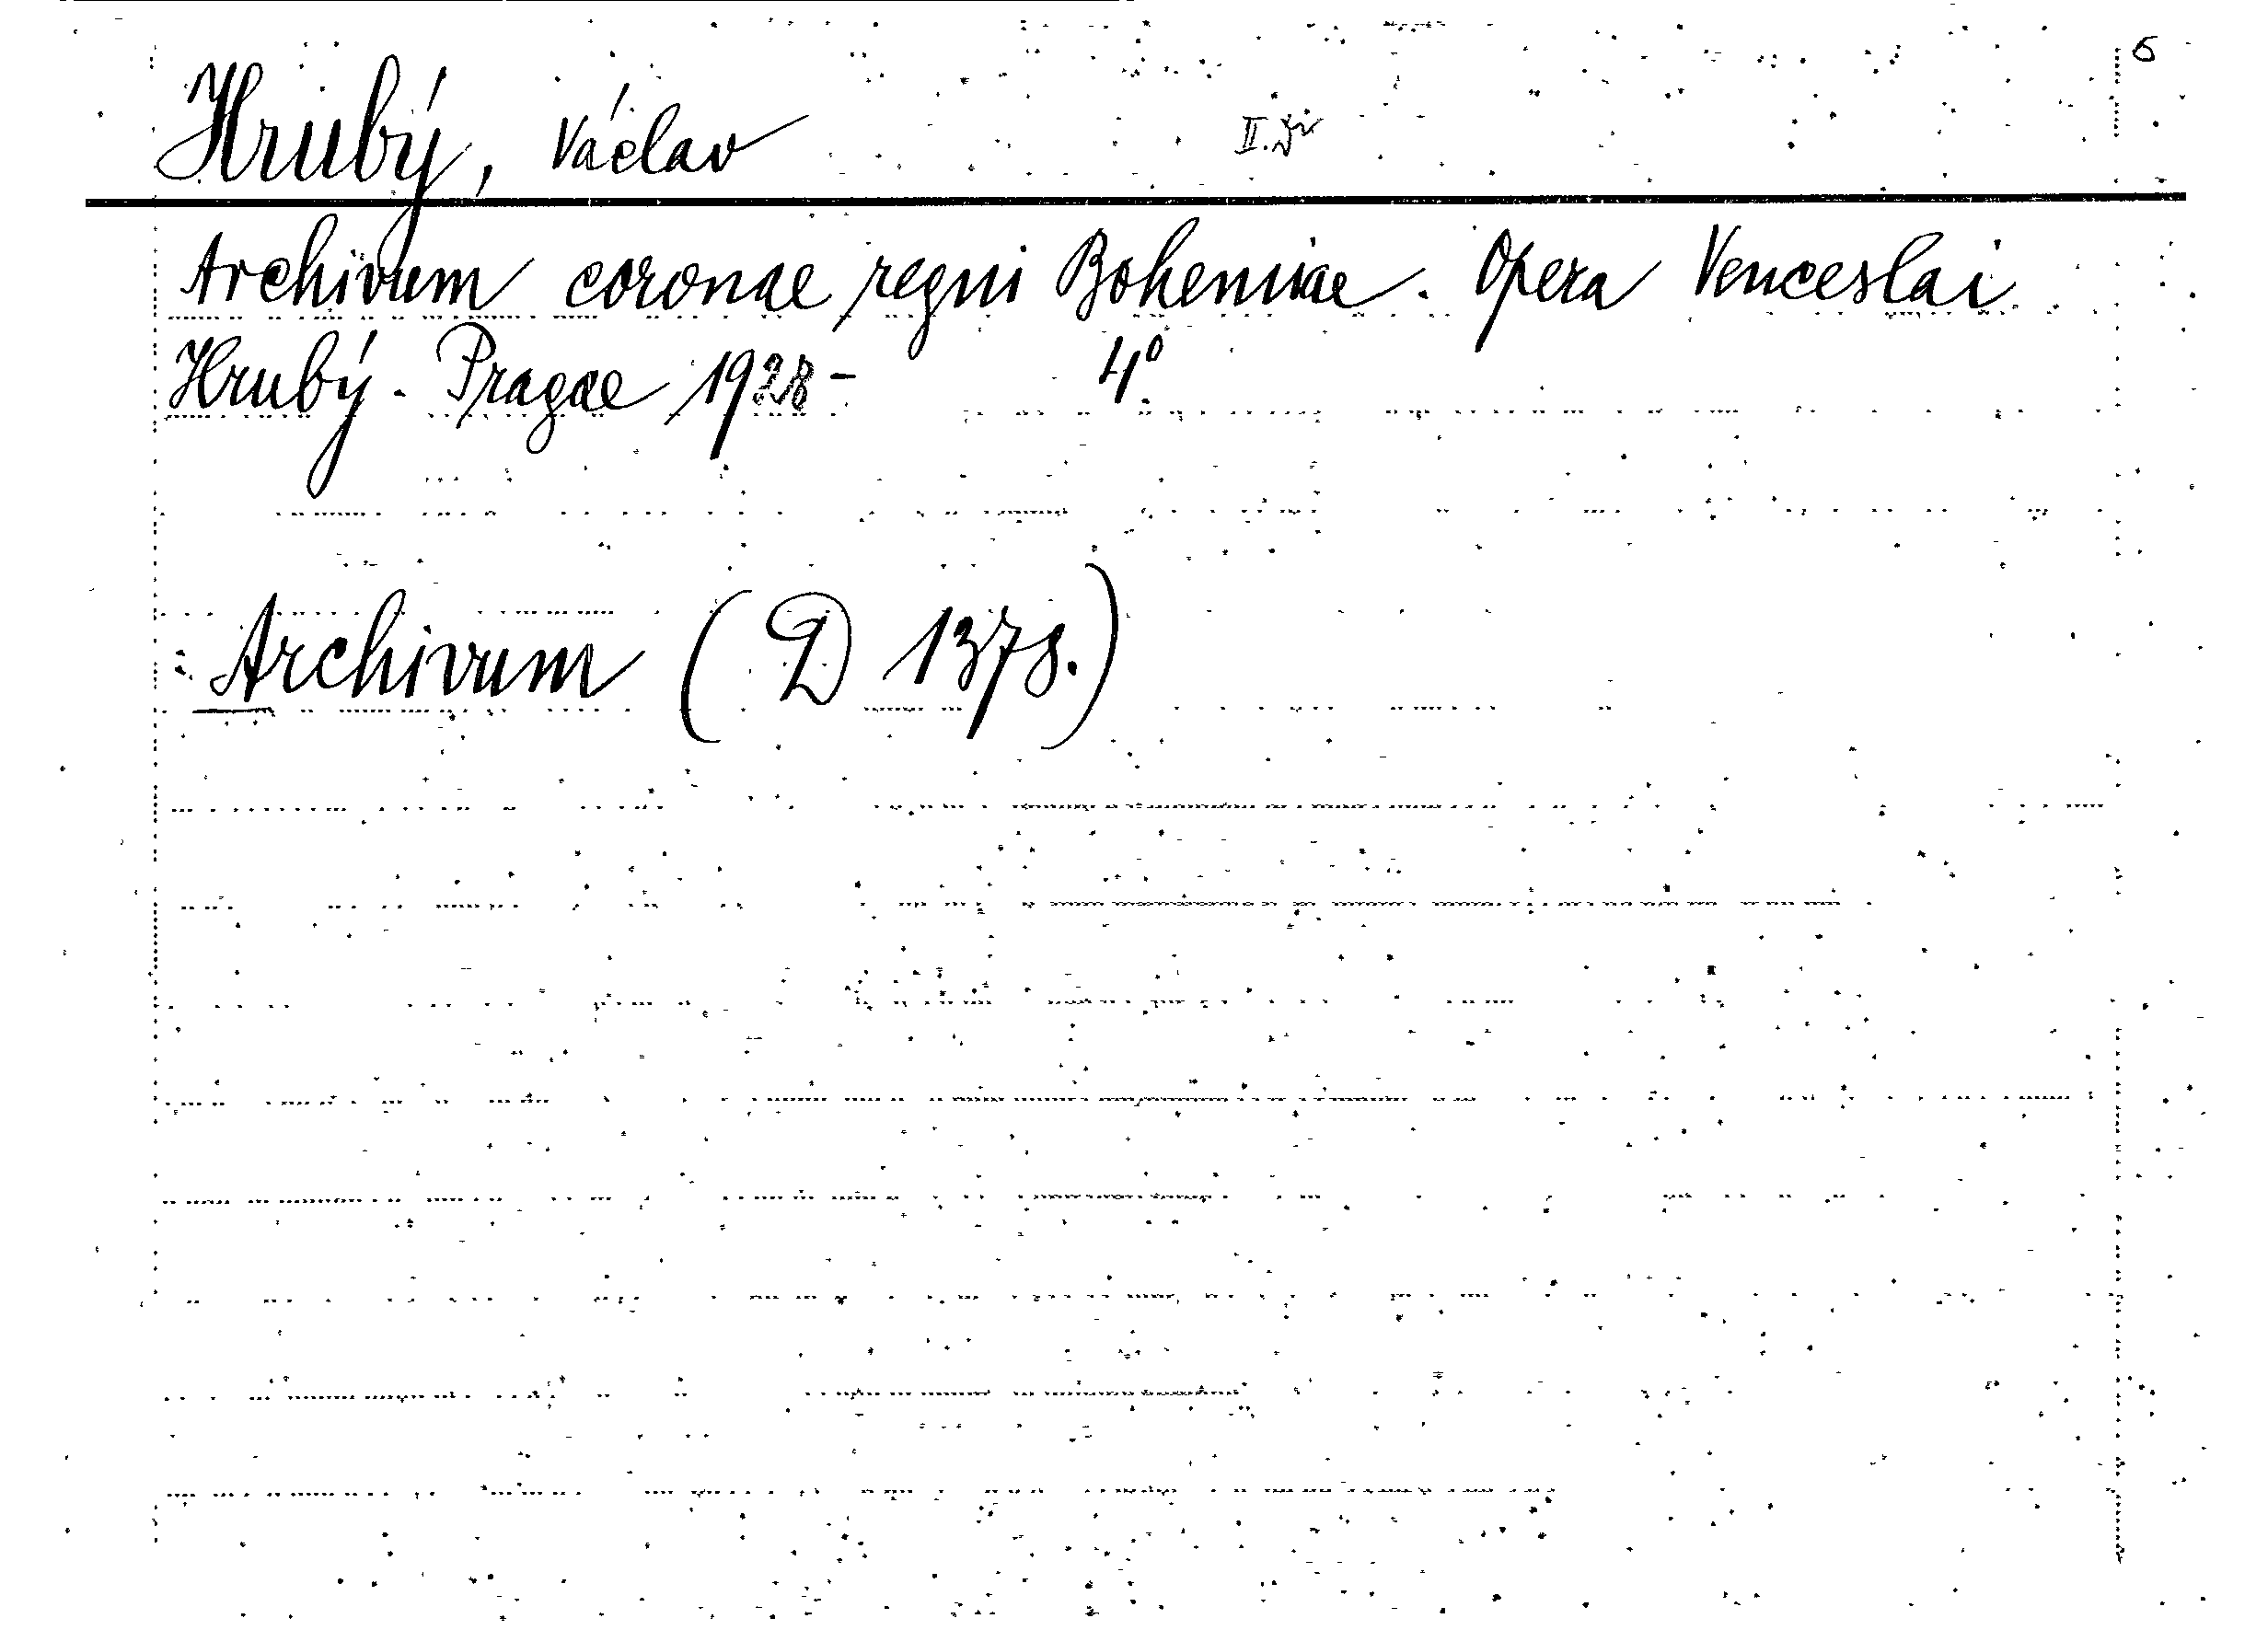 6
Hrubý, Václav
Archivum coronae regni Bohemiae. Opera Venceslai
Hrubý. Pragae 1928- 4°.
: Archivum (D 1378.)